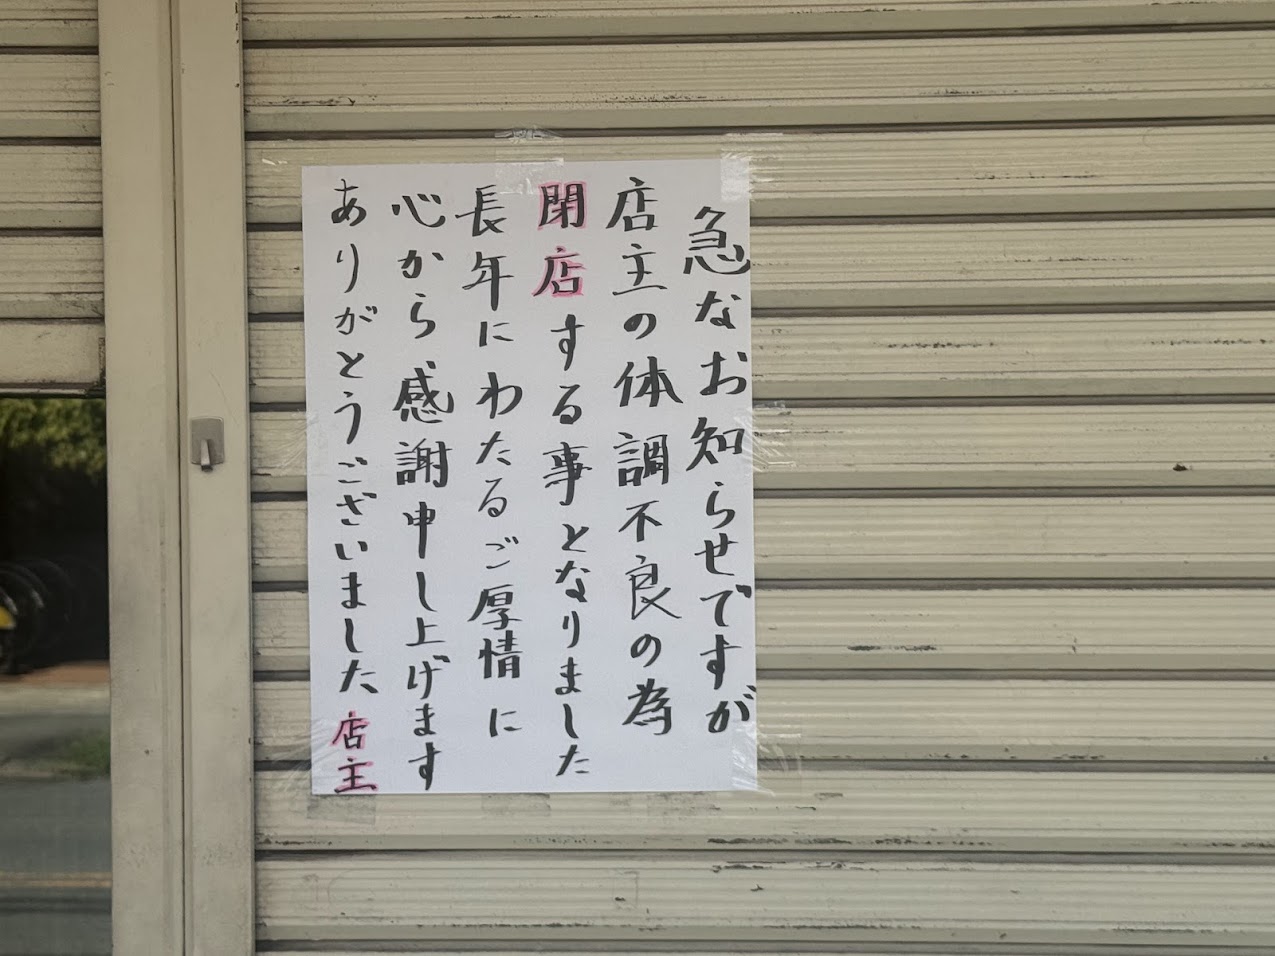 急なお知らせですが
店主の体調不良の為
閉店する事となりました
長年にわたるご厚情に
心から感謝申し上げます
ありがとうございました 店主